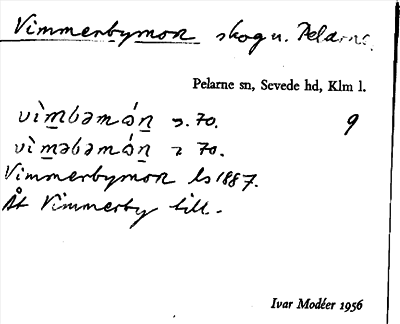 Vimmerbymon skog u. Pelarne.
Pelarne sn, Sevede hd, Klm l.
vìm̲bəmón̲ s. 70. 9
vìm̲əbəmón̲ 70.
Vimmerbymon ls 1887.
Åt Vimmerby till.
Ivar Modéer 1956